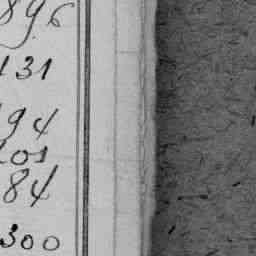 896
131
94
201
84
300